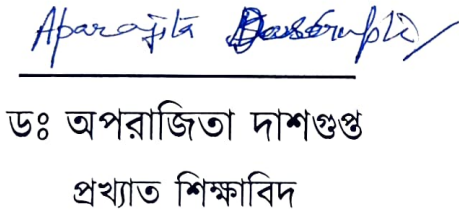 Aparajita Dasgupta
ডঃ অপরাজিতা দাশগুপ্ত
প্রখ্যাত শিক্ষাবিদ